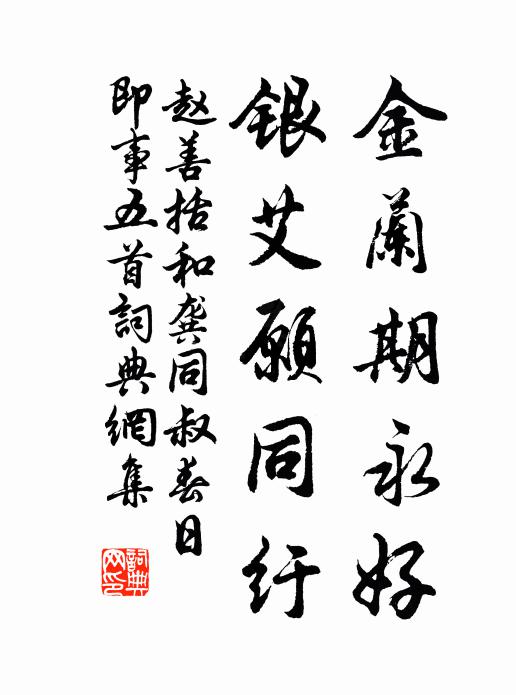 金蘭期永好
銀艾願同紆
赵善括和龔同叔春日
即事五首詞典網集
詞典網印